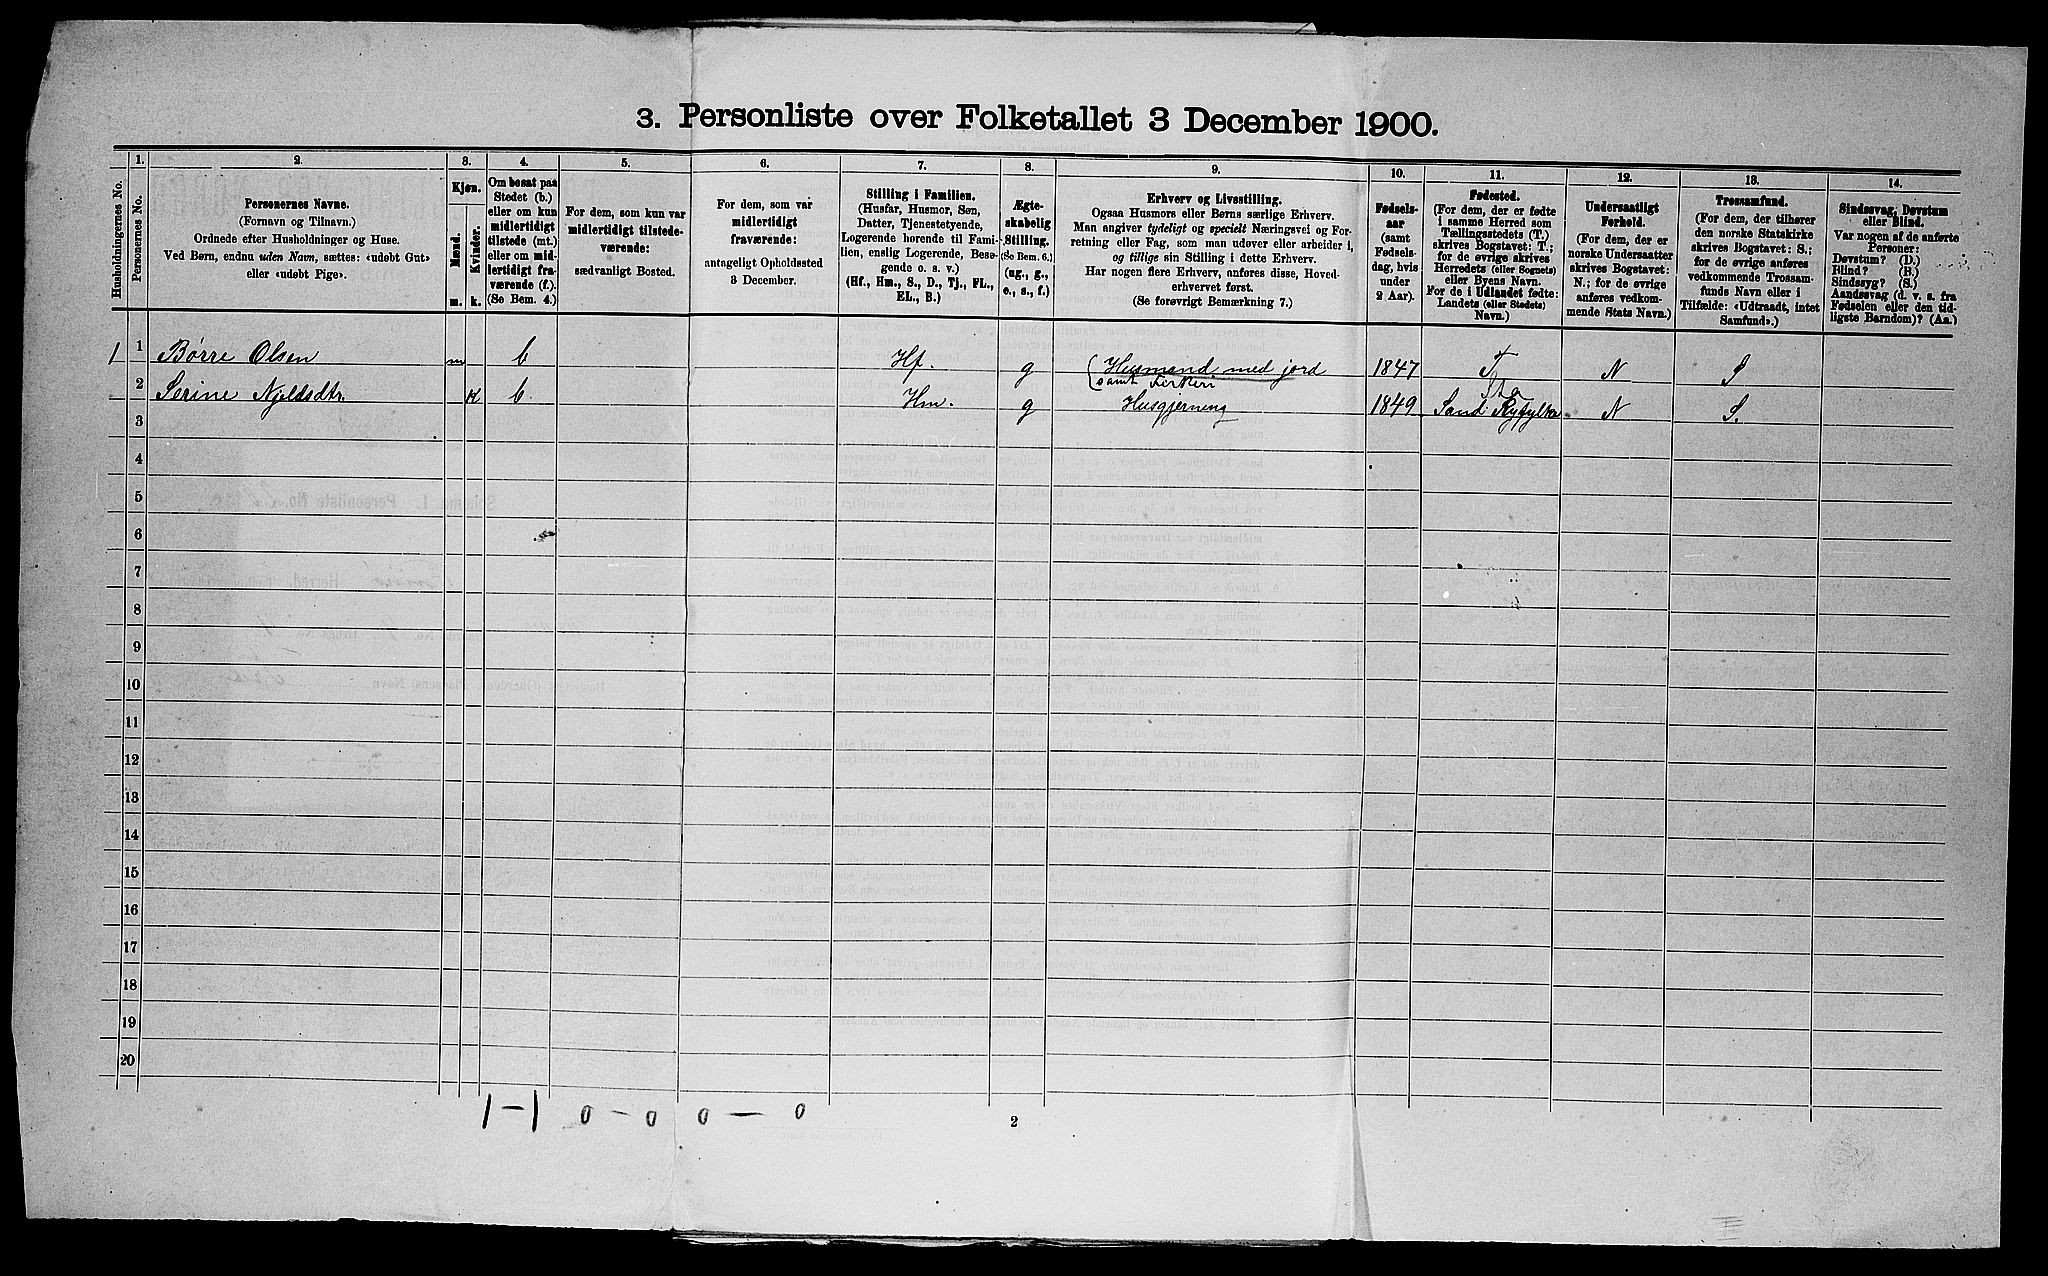 3. Personliste over Folketallet 3 December 1900.
Husholdningernes No.
1.
Personernes No.
2.
Personernes Navne.
(Fornavn og Tilnavn.)
Ordnede efter Husholdninger og Huse.
Ved Børn, endnu uden Navn, sættes: «udøbt Gut»
eller «udøbt Pige».
3.
Kjøn.
Mænd.
Kvinder.
m.
k.
4.
Om bosat paa
Stedet (b.)
eller om kun
midlertidigt
tilstede (mt.)
eller om mid-
lertidigt fra-
værende (f.).
(Se Bem. 4.)
5.
For dem, som kun var
midlertidigt tilstede-
værende:
sædvanligt Bosted.
6.
For dem, som var
midlertidigt
fraværende:
antageligt Opholdssted
3 December.
7.
Stilling i Familien.
(Husfar, Husmor, Søn,
Datter, Tjenestetyende,
Logerende hørende til Fami-
lien, enslig Logerende, Besø-
gende o. s. v.)
(Hf., Hm., S., D., Tj., FL.,
EL., B.)
8.
Ægte-
skabelig
Stilling.
(Se Bem. 6.)
(ug., g.,
e., s., f.)
9.
Erhverv og Livsstilling.
Ogsaa Husmors eller Børns særlige Erhverv.
Man angiver tydeligt og specielt Næringsvei og For-
retning eller Fag, som man udøver eller arbeider i,
og tillige sin Stilling i dette Erhverv.
Har nogen flere Erhverv, anføres disse, Hoved-
erhvervet først.
(Se forøvrigt Bemærkning 7.)
10.
Fødsels-
aar
(samt
Fødsels-
dag, hvis
under
2 Aar).
11.
Fødested.
(For dem, der er fødte
i samme Herred som
Tællingsstedets (T.)
skrives Bogstavet: T.;
for de øvrige skrives
Herredets (eller Sognets)
eller Byens Navn.
For de i Udlandet fødte:
Landets (eller Stedets)
Navn.)
12.
Undersaatligt
Forhold.
(For dem, der er
norske Undersaatter
skrives Bogstavet:
N.; for de øvrige
anføres vedkom-
mende Stats Navn.)
13.
Trossamfund.
(For dem, der tilhører
den norske Statskirke
skrives Bogstavet: S.;
for de øvrige anføres
vedkommende Trossam-
funds Navn eller i
Tilfælde: «Udtraadt, intet
Samfund».)
14.
Sindssvag, Døvstum
eller Blind.
Var nogen af de anførte
Personer:
Døvstum? (D.)
Blind? (B.)
Sindssyg? (S.)
Aandssvag (d. v. s. fra
Fødselen eller den tid-
ligste Barndom)? (Aa.)
1 1 Børre Olsen m b Hf. g Husmand med jord 1847 T N S
samt
2 Serine Njeldsdtr. K b. Hm. g Husgjerning 1849 Sand Ryfylke N S.
3
4
5
6
7
8
9
10
11
12
13
14
15
16
17
18
19
20
1-1 0 - 0 0 - 0
2